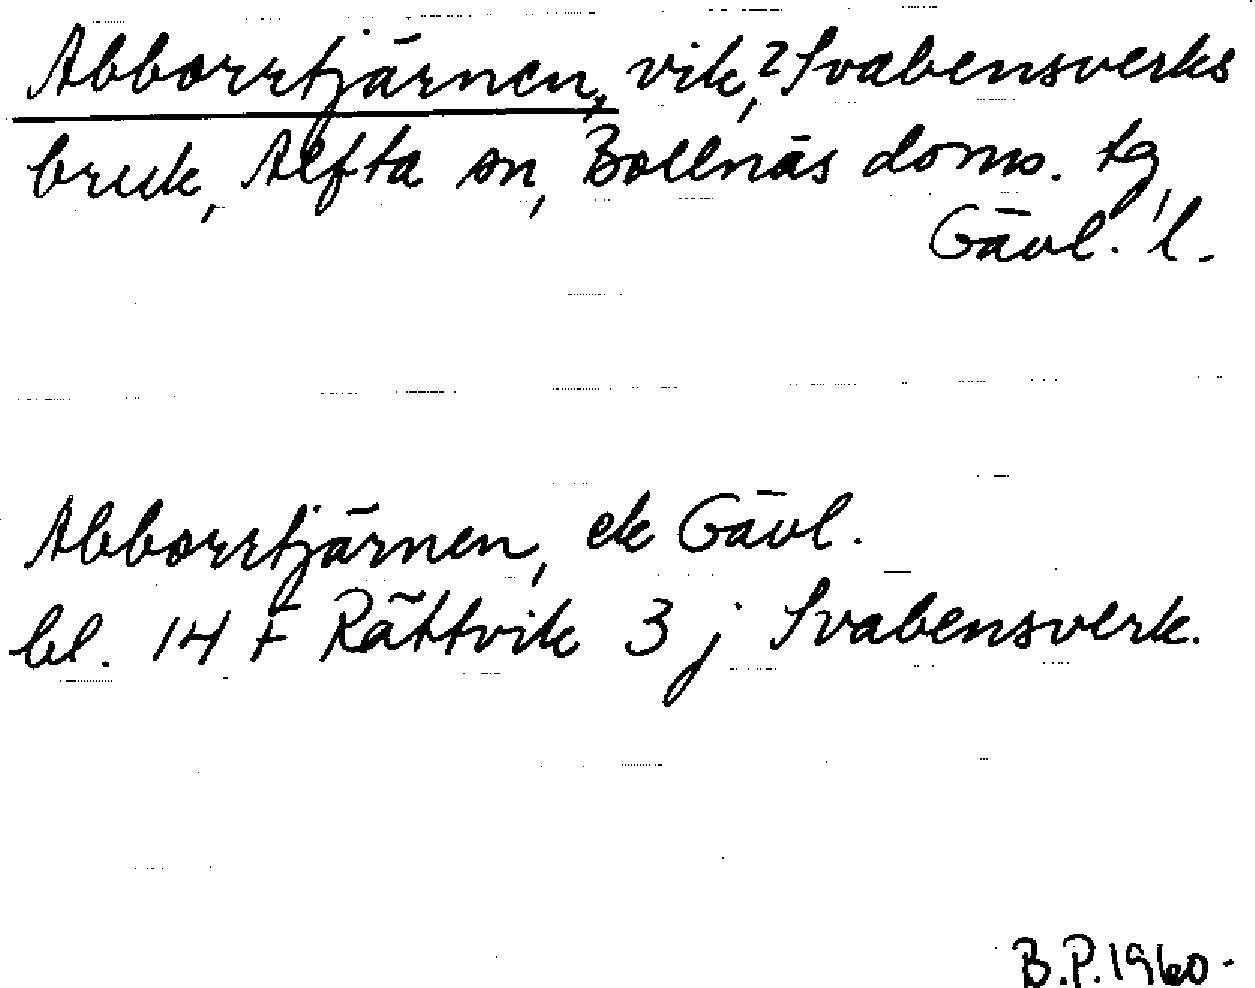 Abborrtjärnen, vik, ? Svabensverks
bruk, Alfta sn, Bollnäs doms. tg,
Gävl. l.
Abborrtjärnen, ek Gävl.
bl. 14 + Rättvik 3 j Svabensverk.
B.P. 1960.